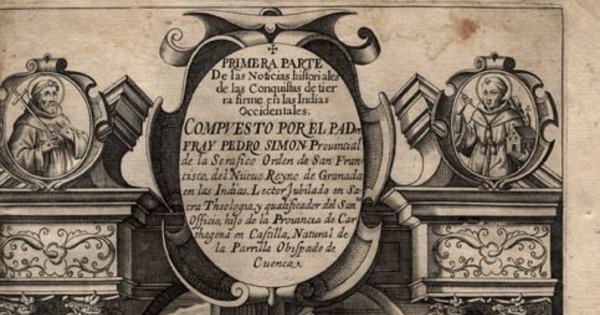 PRIMERA PARTE
De las Noticias historiales
de las Conquistas de tier
ra firme en las Indias
Occidentales.
COMPVESTO POR EL PADre
FRAY PEDRO SIMON Provincial
de la Serafico Orden de San Fran-
cisco, del Nueuo Reyno de Granada
en las Indias, Lector Jubilado en Sa-
cra Theologia, y qualificador del Santo
Officio, hijo de la Prouincia de Car-
thagena en Castilla, Natural de
la Parrilla Obispado de
Cuenca